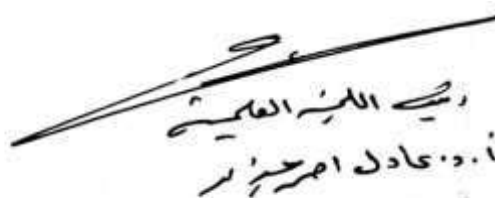 رئيس اللجنة العلمية
أ.د. عادل احمد